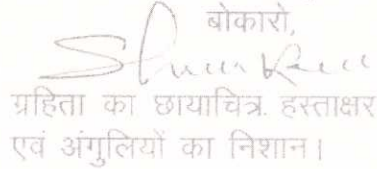 बोकारो,
ग्रहिता का छायाचित्र. हस्ताक्षर
एवं अंगुलियों का निशान।